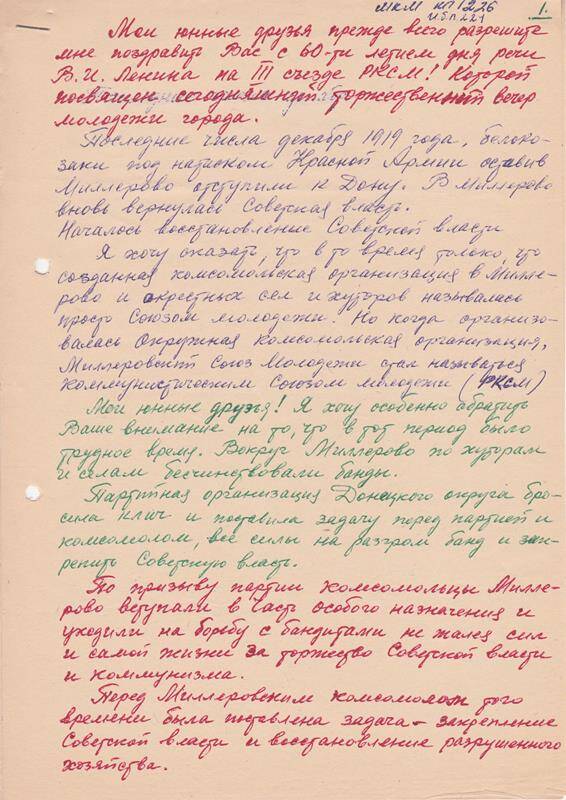 МКМ КП 1226
И.б.п. 221
1.
Мои юнные друзья прежде всего разрешите
мне поздравить Вас с 60-ти летием дня речи
В.И. Ленина на III съезде РКСМ! Которой
посвящен сегодняшний торжественный вечер
молодежи города.
Последние числа декабря 1919 года, белока-
заки под натиском Красной Армии оставив
Миллерово отступили к Дону. В Миллерово
вновь вернулась Советская власть.
Началось восстановление Советской власти
Я хочу сказать, что в то время только, что
созданная комсомольская организация в Милле-
рово и окрестных сел и хуторов называлась
просто Союзом молодежи. Но когда организо-
валась Окружная Комсомольская организация,
Миллеровский Союз Молодежи стал называться
Коммунистическим Союзом молодежи (РКСМ)
Мои юнные друзья! Я хочу особенно обратить
Ваше внимание на то, что в тот период было
трудное время. Вокруг Миллерово по хуторам
и селам бесчинствовали банды.
Партийная организация Донецкого округа бро-
сила клич и поставила задачу перед партией и
комсомолом, все силы на разгром банд и зак-
репить Советскую власть.
По призыву партии комсомольцы Милле-
рово вступали в Часть особого назначения и
уходили на борьбу с бандитами не жалея сил
и самой жизни за торжество Советской власти
и коммунизма.
Перед Миллеровским комсомолом того
времени была поставлена задача - закрепление
Советской власти и восстановление разрушенного
хозяйства.